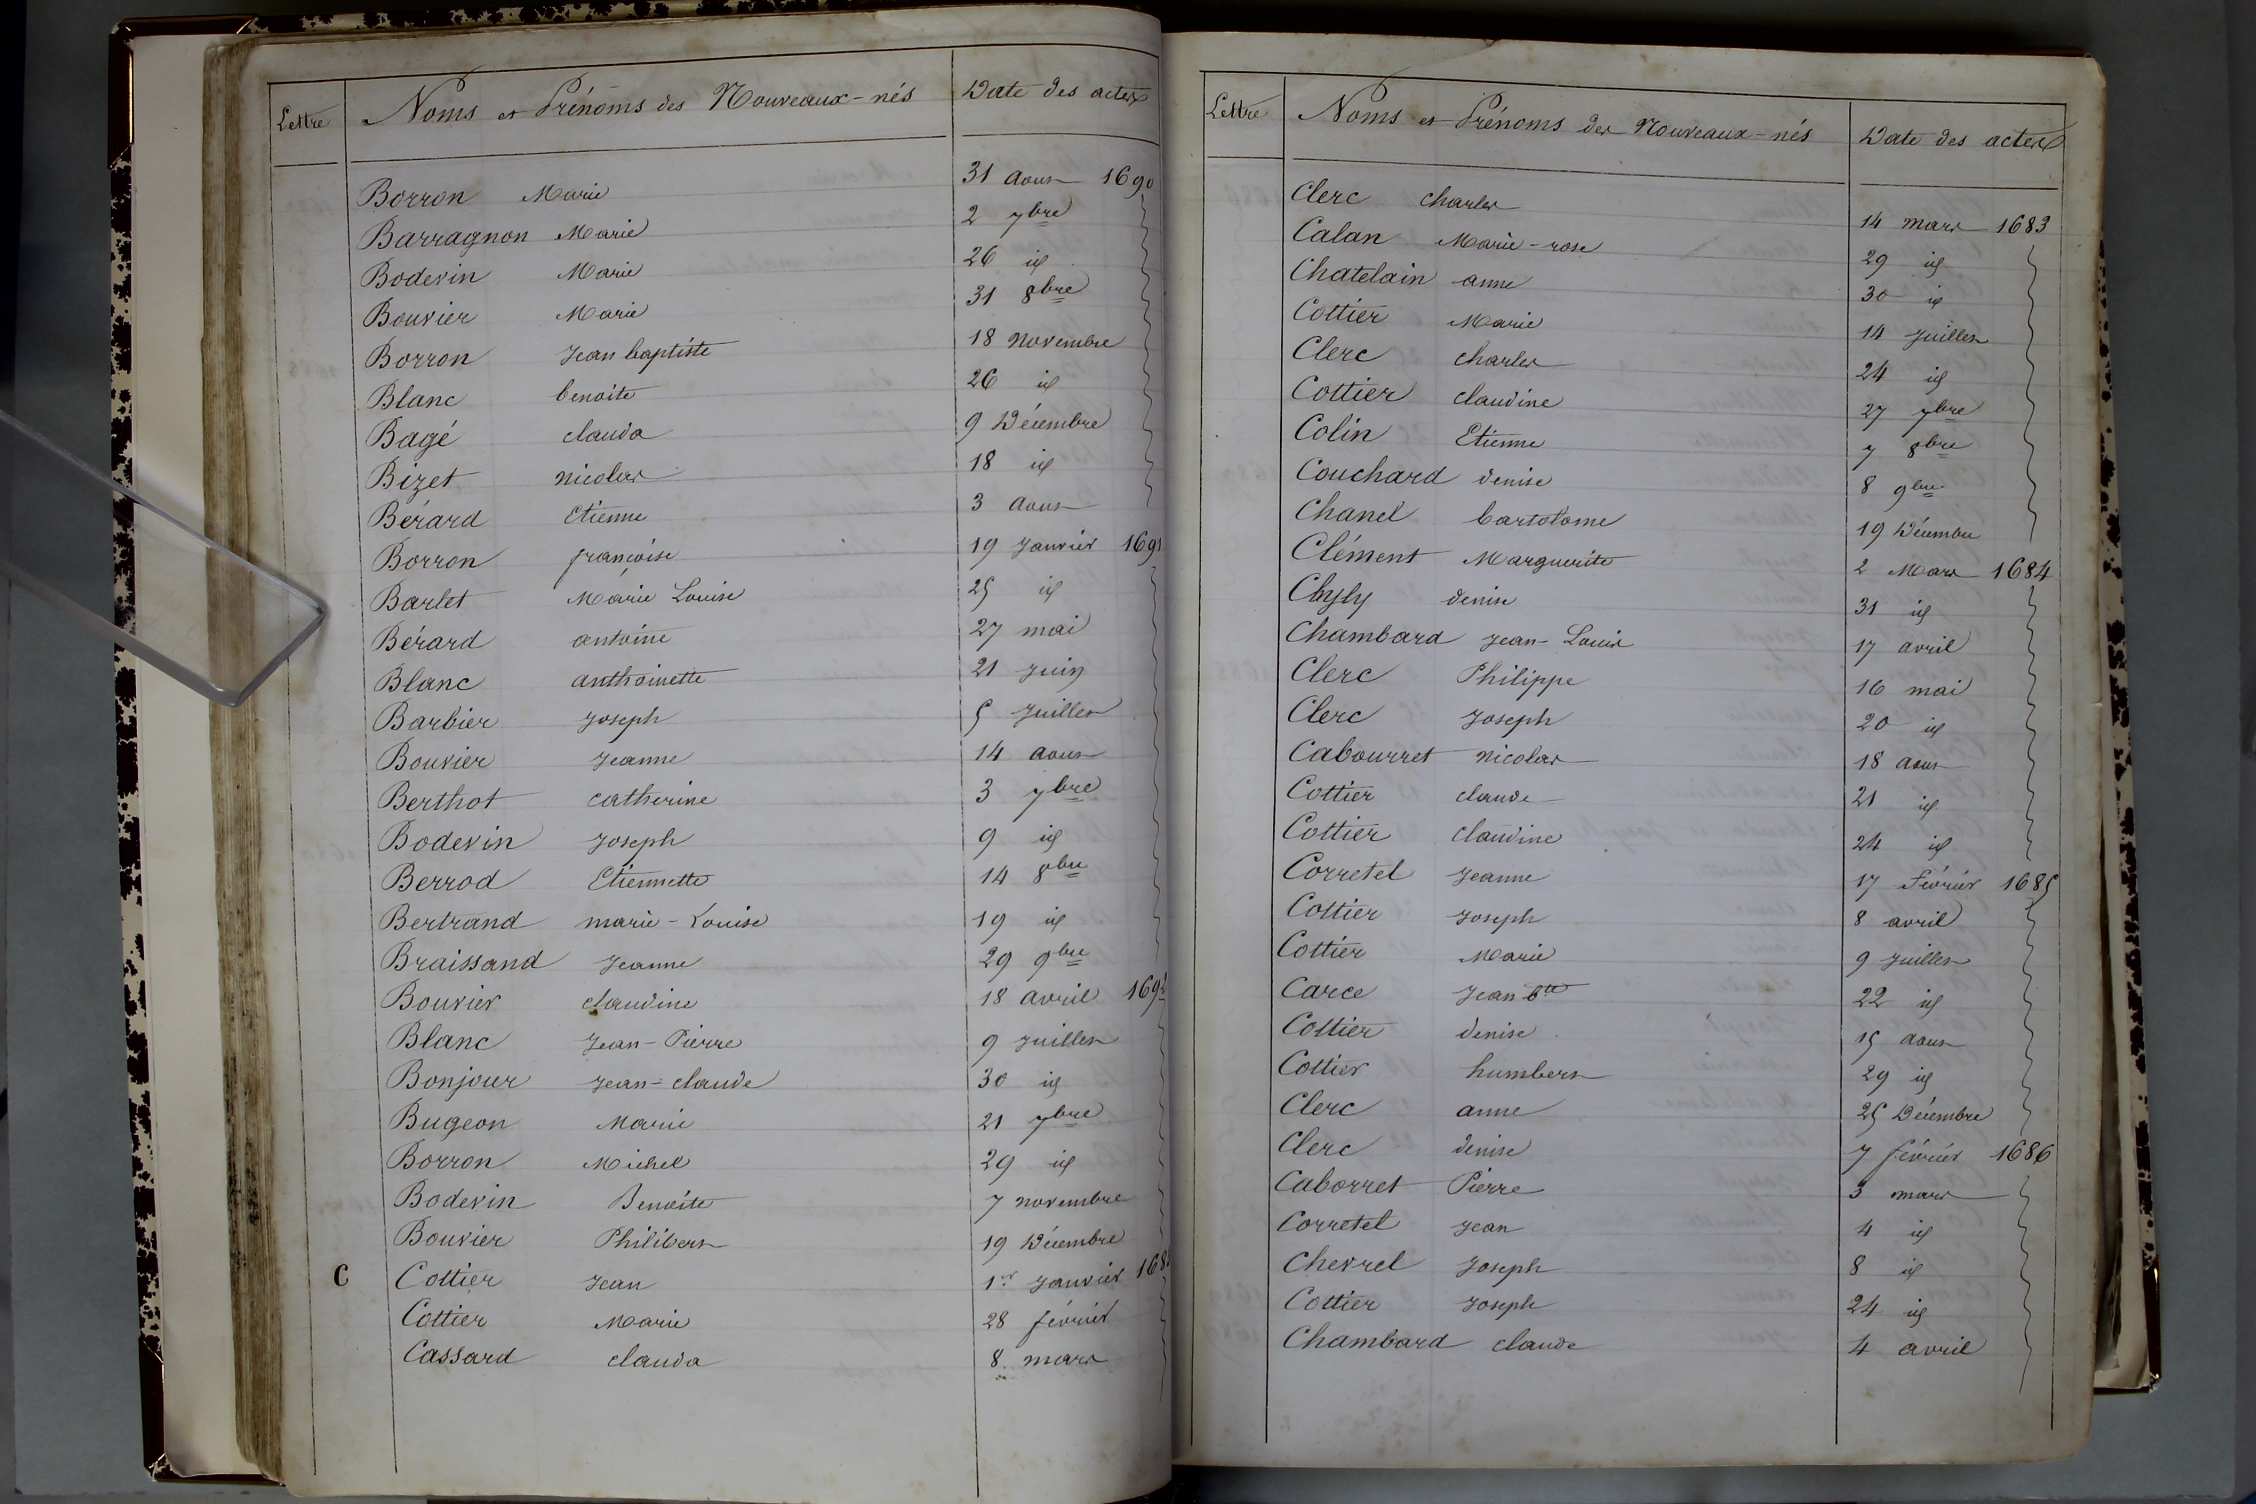 Lettre Noms et Prénoms des Nouveaux-nés Date des actes
Borron Marie 31 aout 1690
Barragnon Marie 2 7bre
Boderin Marie 26 id
Bouvier Marie 31 8bre
Borron Jean baptiste 18 novembre
Blanc benoite 26 id
Bagé clauda 9 Décembre
Bizet nicolas 18 id
Bérard Etienne 3 aout
Borron françoise 19 Janvier 1691
Barlet Marie Louise 25 id
Bérard antoine 27 mai
Blanc anthoinette 21 Juin
Barbier Joseph 5 Juillet
Bouvier Jeanne 14 aout
Berthot catherine 3 7bre
Boderin Joseph 9 id
Berrod Etiennette 14 8bre
Bertrand marie-Louise 19 id
Braissand Jeanne 29 9bre
Bouvier claudine 18 avril 1692
Blanc Jean-Pierre 9 Juillet
Bonjour Jean-claude 30 id
Bugeon Marie 21 7bre
Borron Michel 29 id
Boderin Benoite 7 novembre
Bouvier Philibert 19 Décembre
C Cottier Jean 1er Janvier
Cottier Marie 28 février
Cassard clauda 8 mars
Lettre Noms et Prénoms des Nouveaux-nés Date des actes
Clerc charles 14 mars 1683
Calan Marie-rose 29 id
Chatelain anne 30 id
Cottier Marie 14 Juillet
Clerc charles 24 id
Cottier claudine 27 7bre
Colin Etienne 7 8bre
Couchard denise 8 9bre
Chanel bartolome 19 Décembre
Clément Marguerite 2 Mars 1684
denise 31 id
Chambard Jean-Louis 17 avril
Clerc Philippe 16 mai
Clerc Joseph 20 id
Cabourret nicolas 18 aout
Cottier claude 21 id
Cottier claudine 24 id
Corretel Jeanne 17 Février 1685
Cottier Joseph 8 avril
Cottier Marie 9 Juillet
Carce Jean bte 22 id
Cottier denise 15 aout
Cottier humbert 29 id
Clerc anne 25 Décembre
Clerc denise 7 février 1686
Caborret Pierre 3 mars
Corretel Jean 4 id
Chevrel Joseph 8 id
Cottier Joseph 24 id
Chambard claude 4 avril